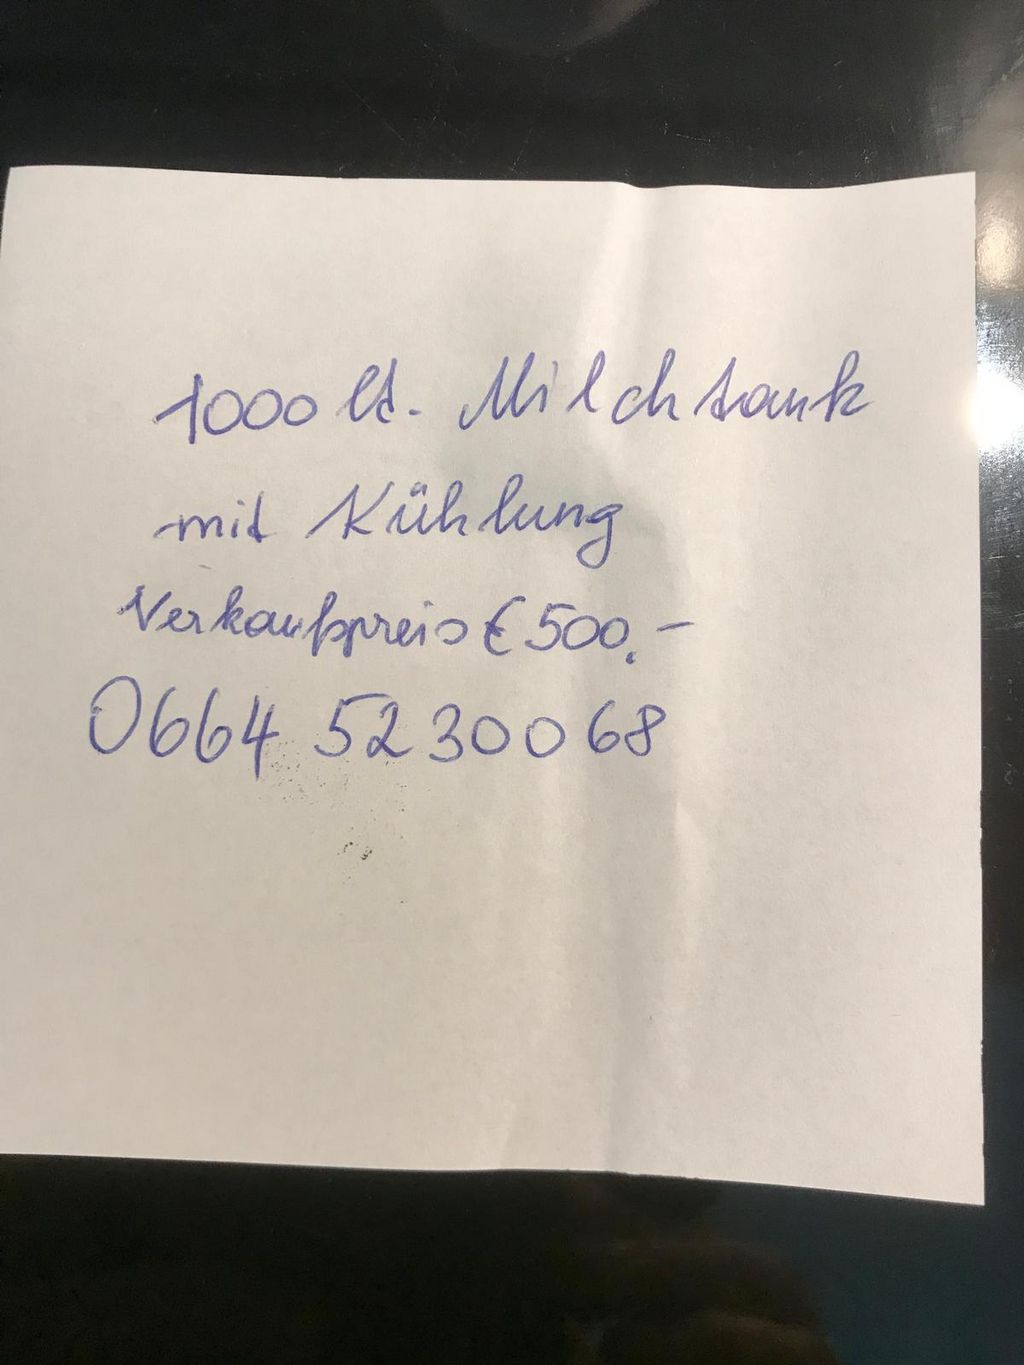 1000 lt. Milchtank
mit Kühlung
Verkaufspreis € 500.-
0664 5230068